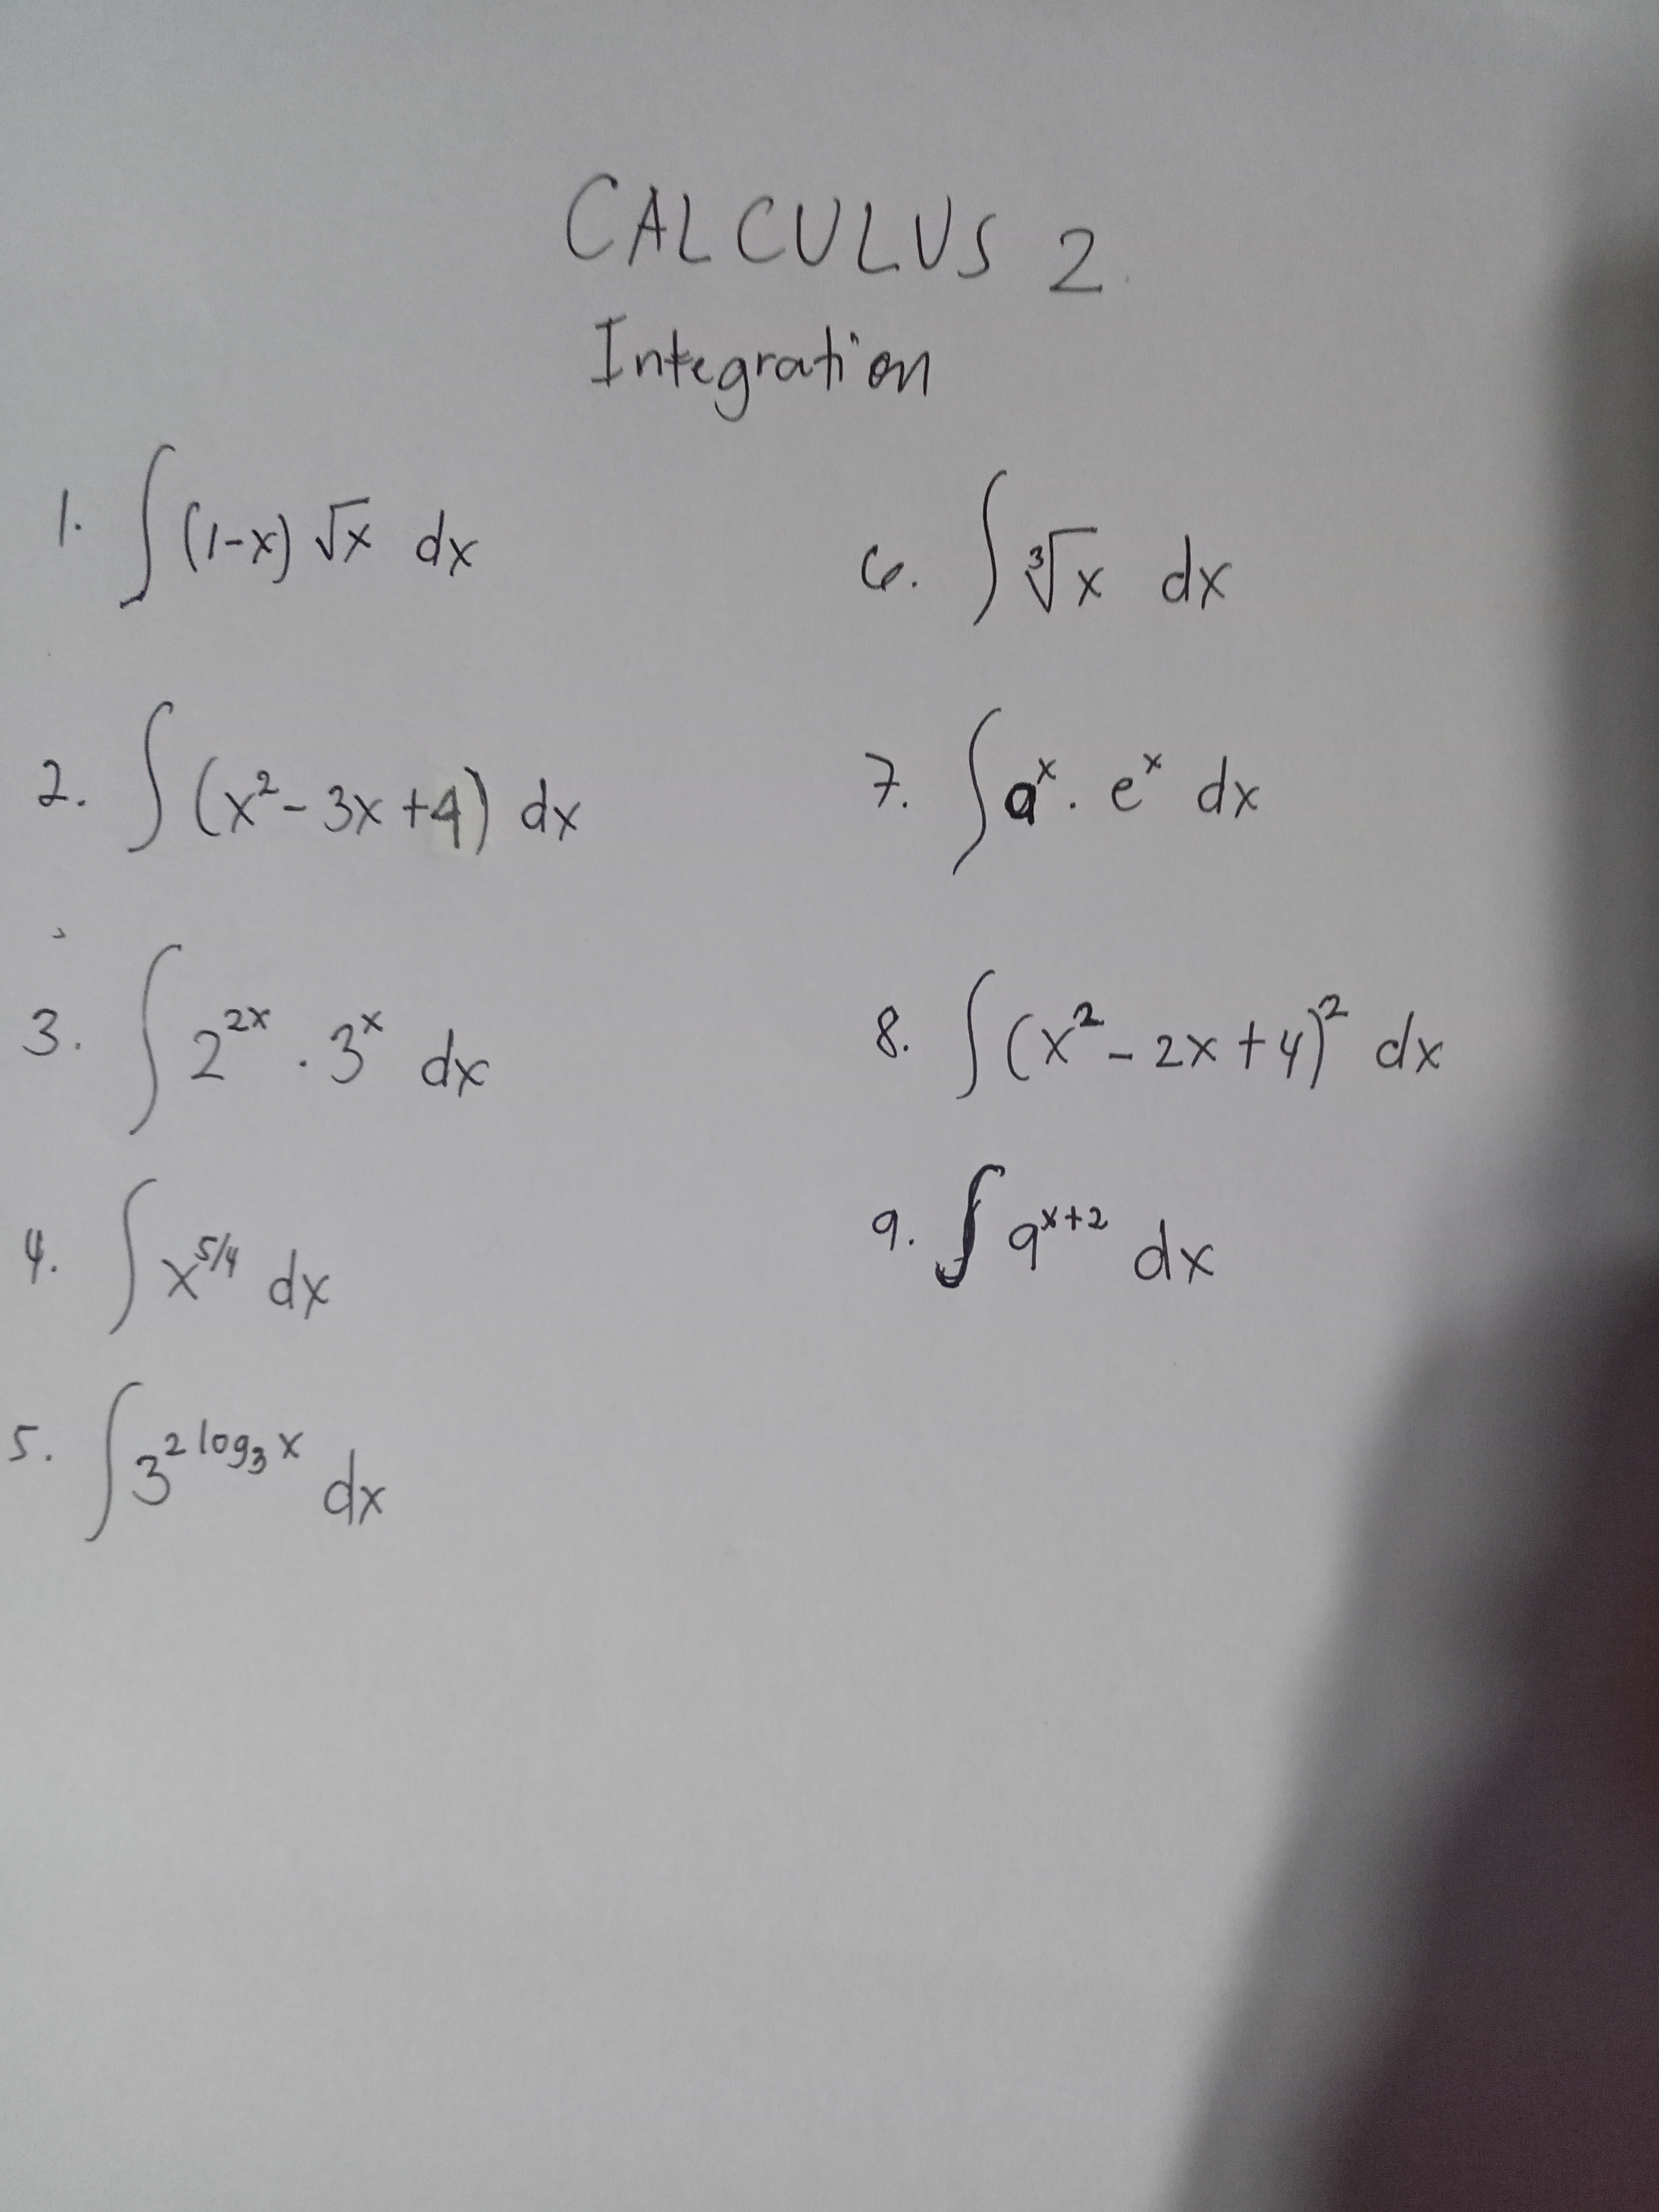 CALCULUS 2
Integration
1. ∫(1-x) √x dx
2. ∫(x²-3x+4) dx
3. ∫2^{2x} · 3^x dx
4. ∫x^{5/4} dx
5. ∫3^{2 log₃ x} dx
6. ∫∛x dx
7. ∫a^x · e^x dx
8. ∫(x²-2x+4)² dx
9. ∫9^{x+2} dx